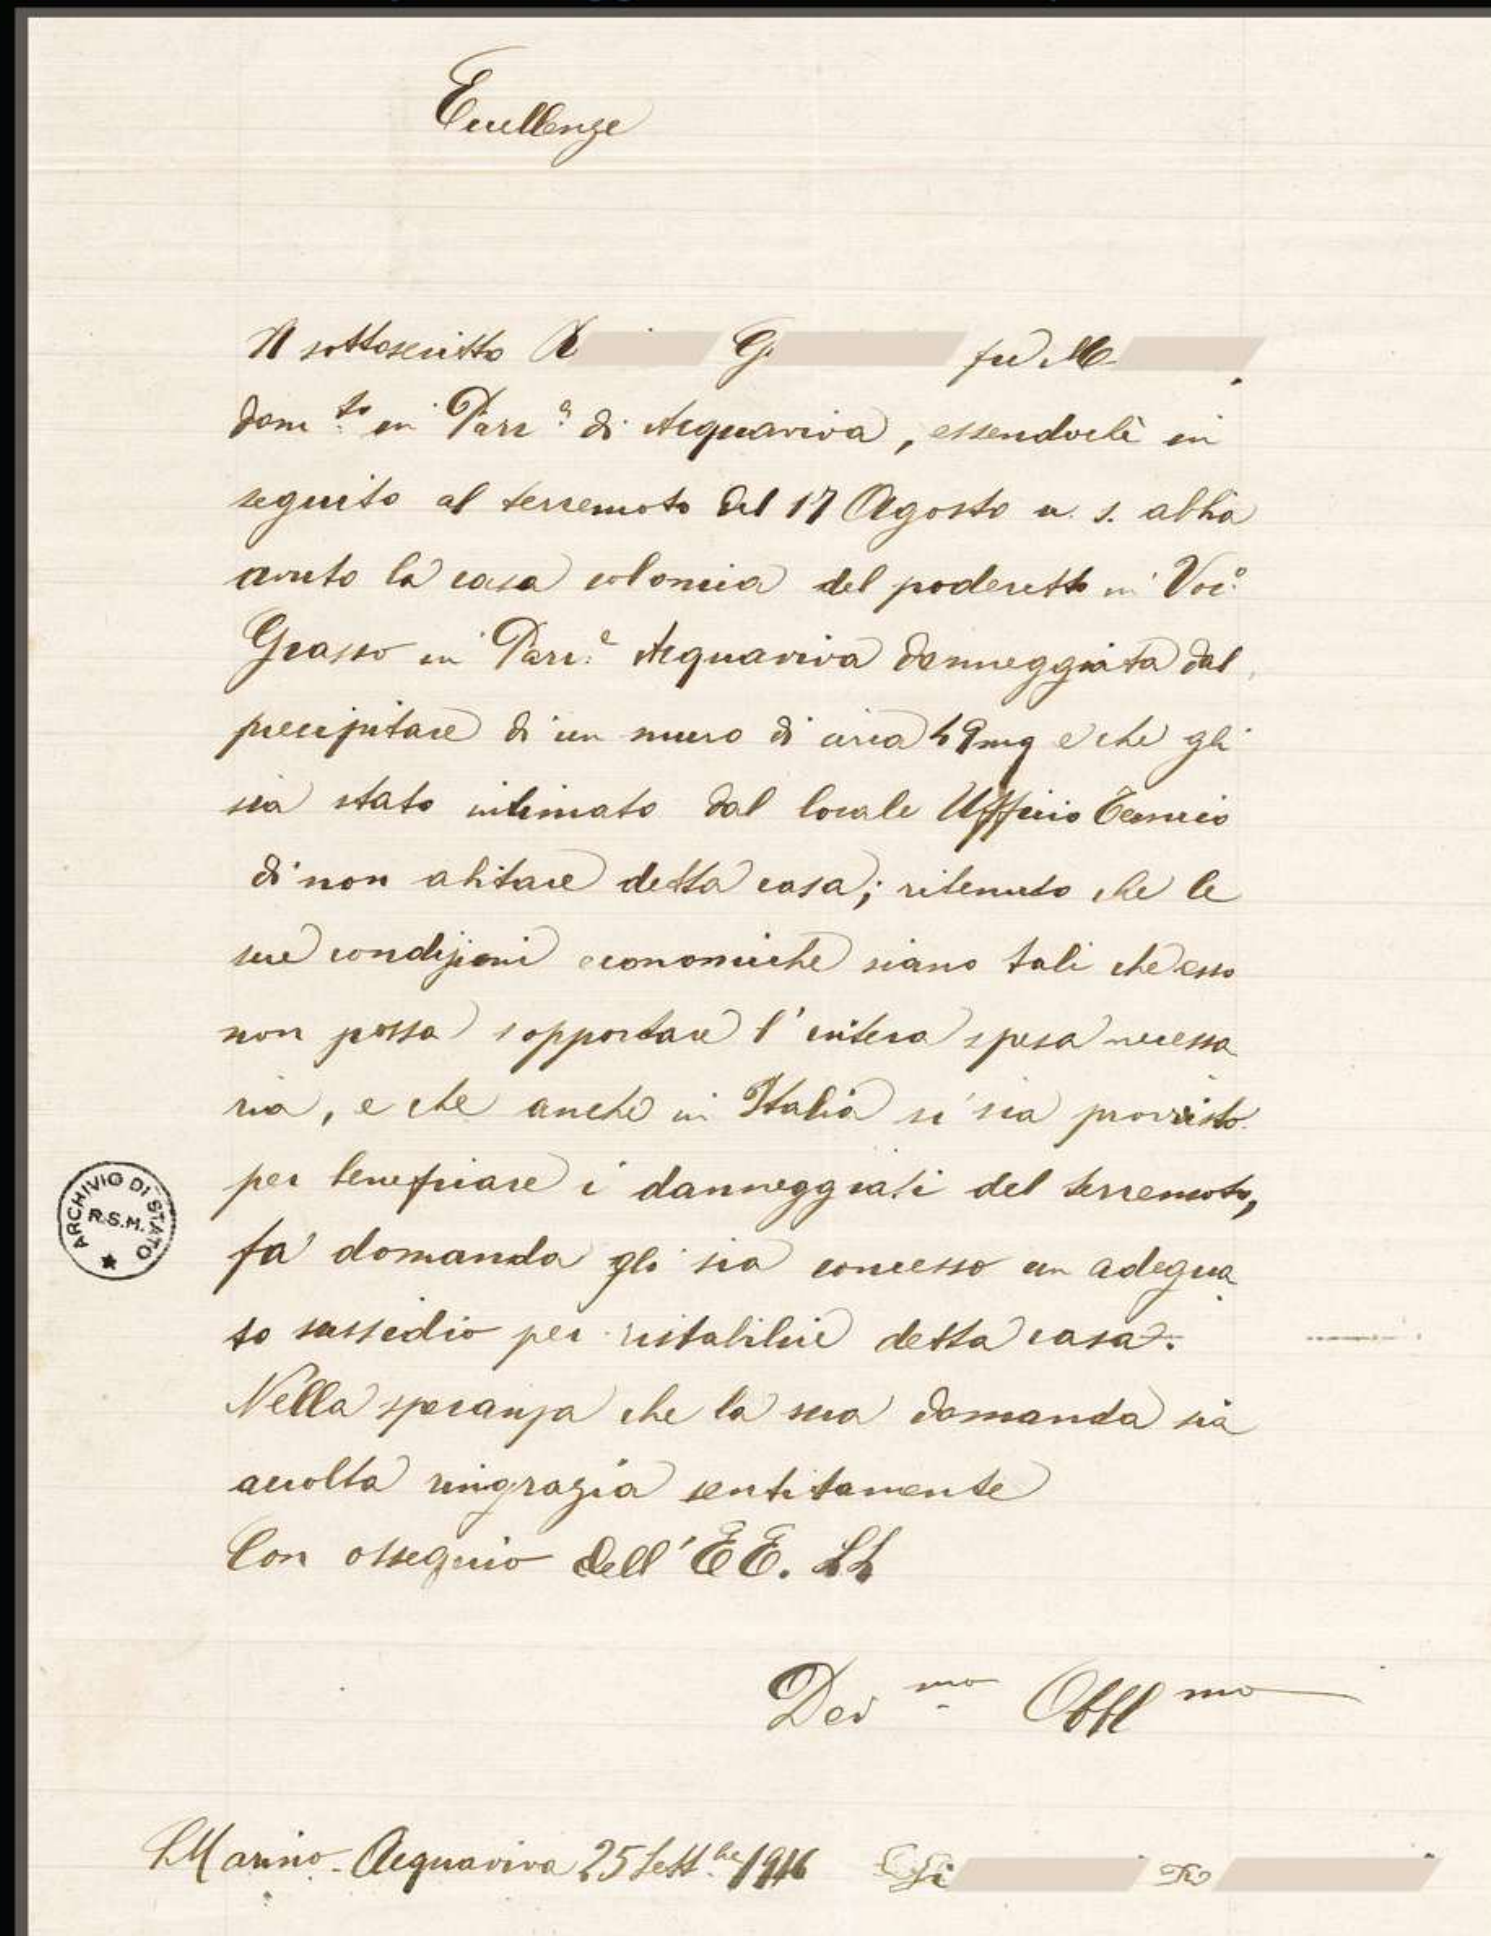 Eccellenze
Il sottoscritto R G fu M
dom.to in Parr.a di Acquaviva, essendochè in
seguito al terremoto del 17 Agosto u. s. abbia
avuto la casa colonica del poderetto in Voc.o
Grasso in Parr.a Acquaviva danneggiata dal
precipitare di un muro di circa 49 mq e che gli
sia stato intimato dal locale Ufficio Tecnico
di non abitare detta casa; ritenuto che le
sue condizioni economiche siano tali che esso
non possa sopportare l'intera spesa necessa
ria, e che anche in Italia si sia provvisto
per beneficiare i danneggiati del terremoto,
fa' domanda gli sia concesso un adegua
to sussidio per ristabilire detta casa.
Nella speranza che la sua domanda sia
accolta ringrazia sentitamente
Con ossequio dell'EE. LL
Dev mo Obbl mo
ARCHIVIO DI STATO
R.S.M.
S. Marino - Acquaviva 25 Sett.be 1916 R